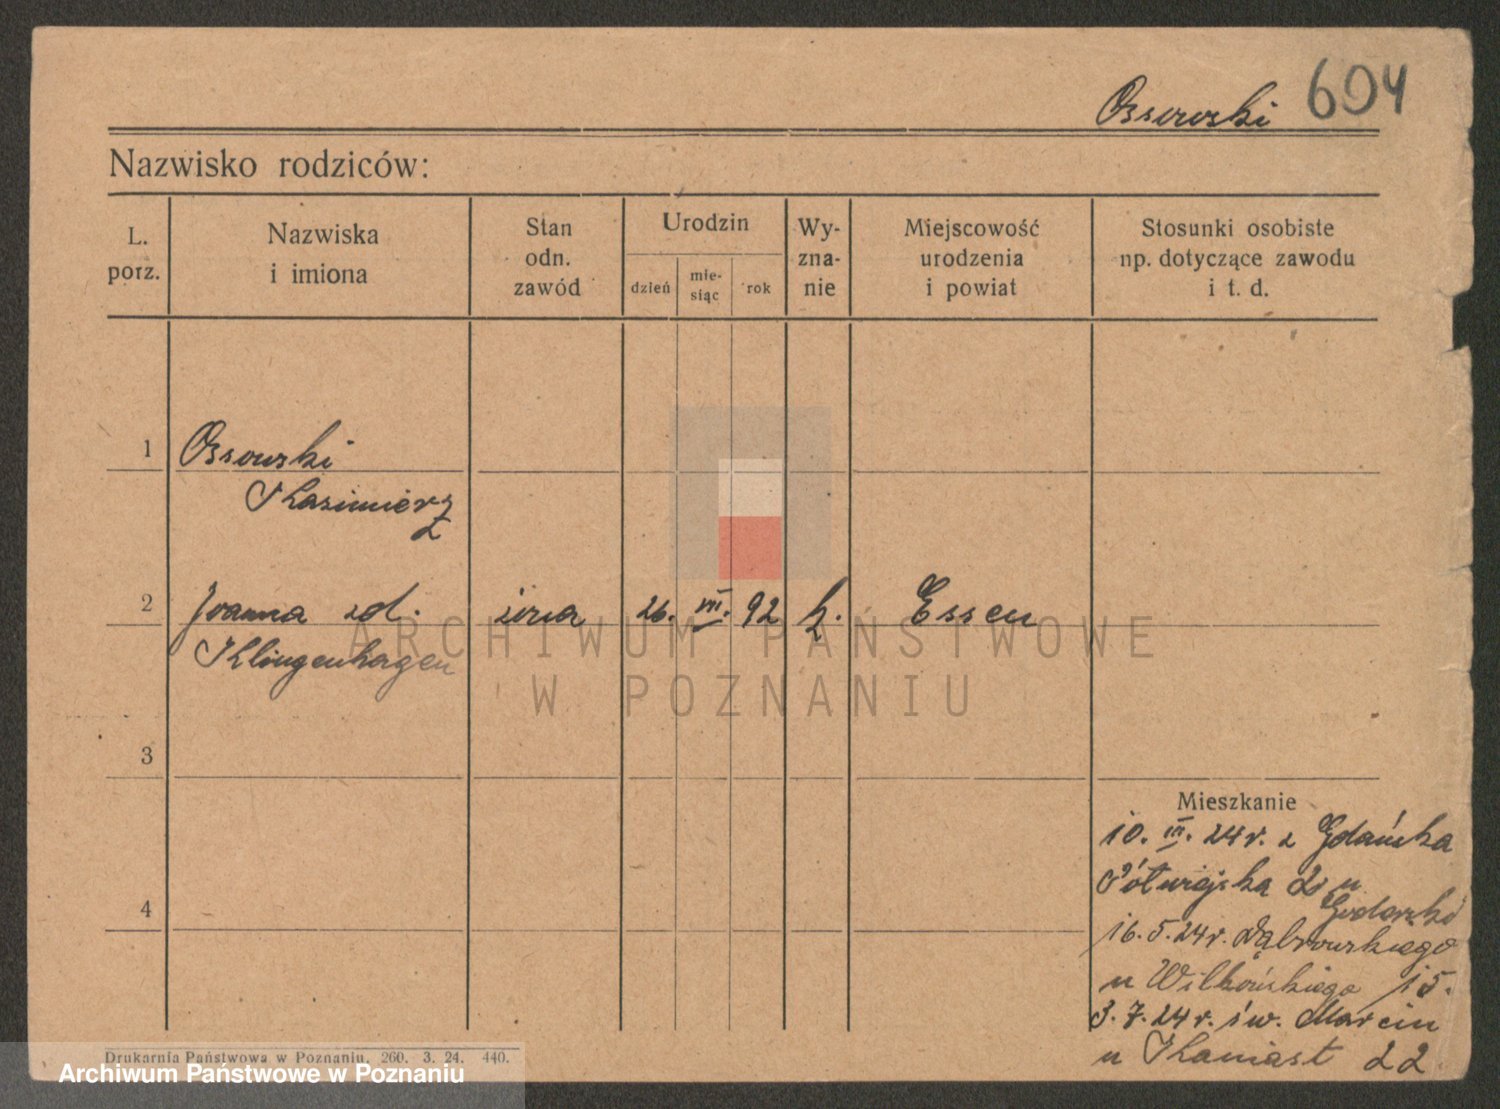 Ossowski 604
Nazwisko rodziców:
L. porz.
Nazwiska i imiona
Stan odn. zawód
Urodzin
dzień
mie-siąc
rok
Wy-zna-nie
Miejscowość urodzenia i powiat
Stosunki osobiste np. dotyczące zawodu i t. d.
1 Ossowski
Kazimierz
2 Joanna zd. żona 26. VII. 92 k. Essen
Klingenhagen
ARCHIWUM PAŃSTWOWE
W POZNANIU
3
Mieszkanie
10. III. 24 r. z Gdańska
Półwiejska
4
16.5.24 r. Dąbrowskiego
u Wilkońskiego 15.
3.7.24 r. św. Marcin
u Kaniast 22
Drukarnia Państwowa w Poznaniu. 260. 3. 24. 440.
Archiwum Państwowe w Poznaniu